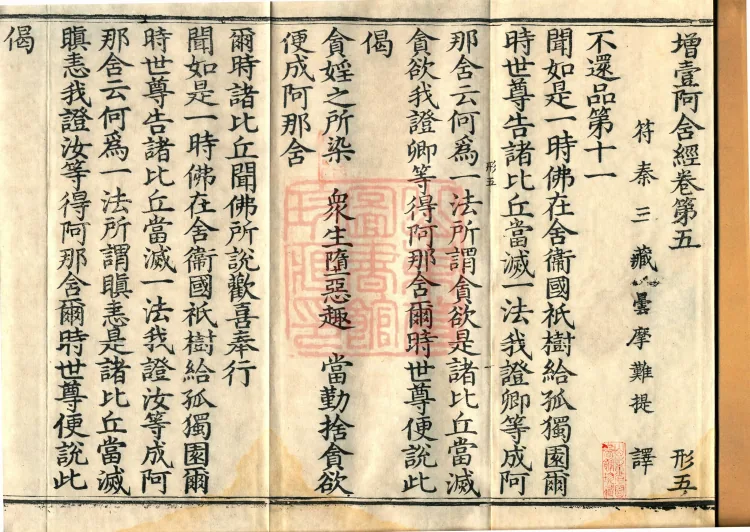 增壹阿含經卷第五　形五
符秦三藏曇摩難提　譯
不還品第十一
聞如是一時佛在舍衞國祇樹給孤獨園爾
時世尊告諸比丘當滅一法我證卿等成阿
形五
那含云何爲一法所謂貪欲是諸比丘當滅
貪欲我證卿等得阿那含爾時世尊便說此
偈
貪婬之所染　衆生墮惡趣　當勤捨貪欲
便成阿那含
爾時諸比丘聞佛所說歡喜奉行
聞如是一時佛在舍衞國祇樹給孤獨園爾
時世尊告諸比丘當滅一法我證汝等成阿
那含云何爲一法所謂瞋恚是諸比丘當滅
瞋恚我證汝等得阿那含爾時世尊便說此
偈